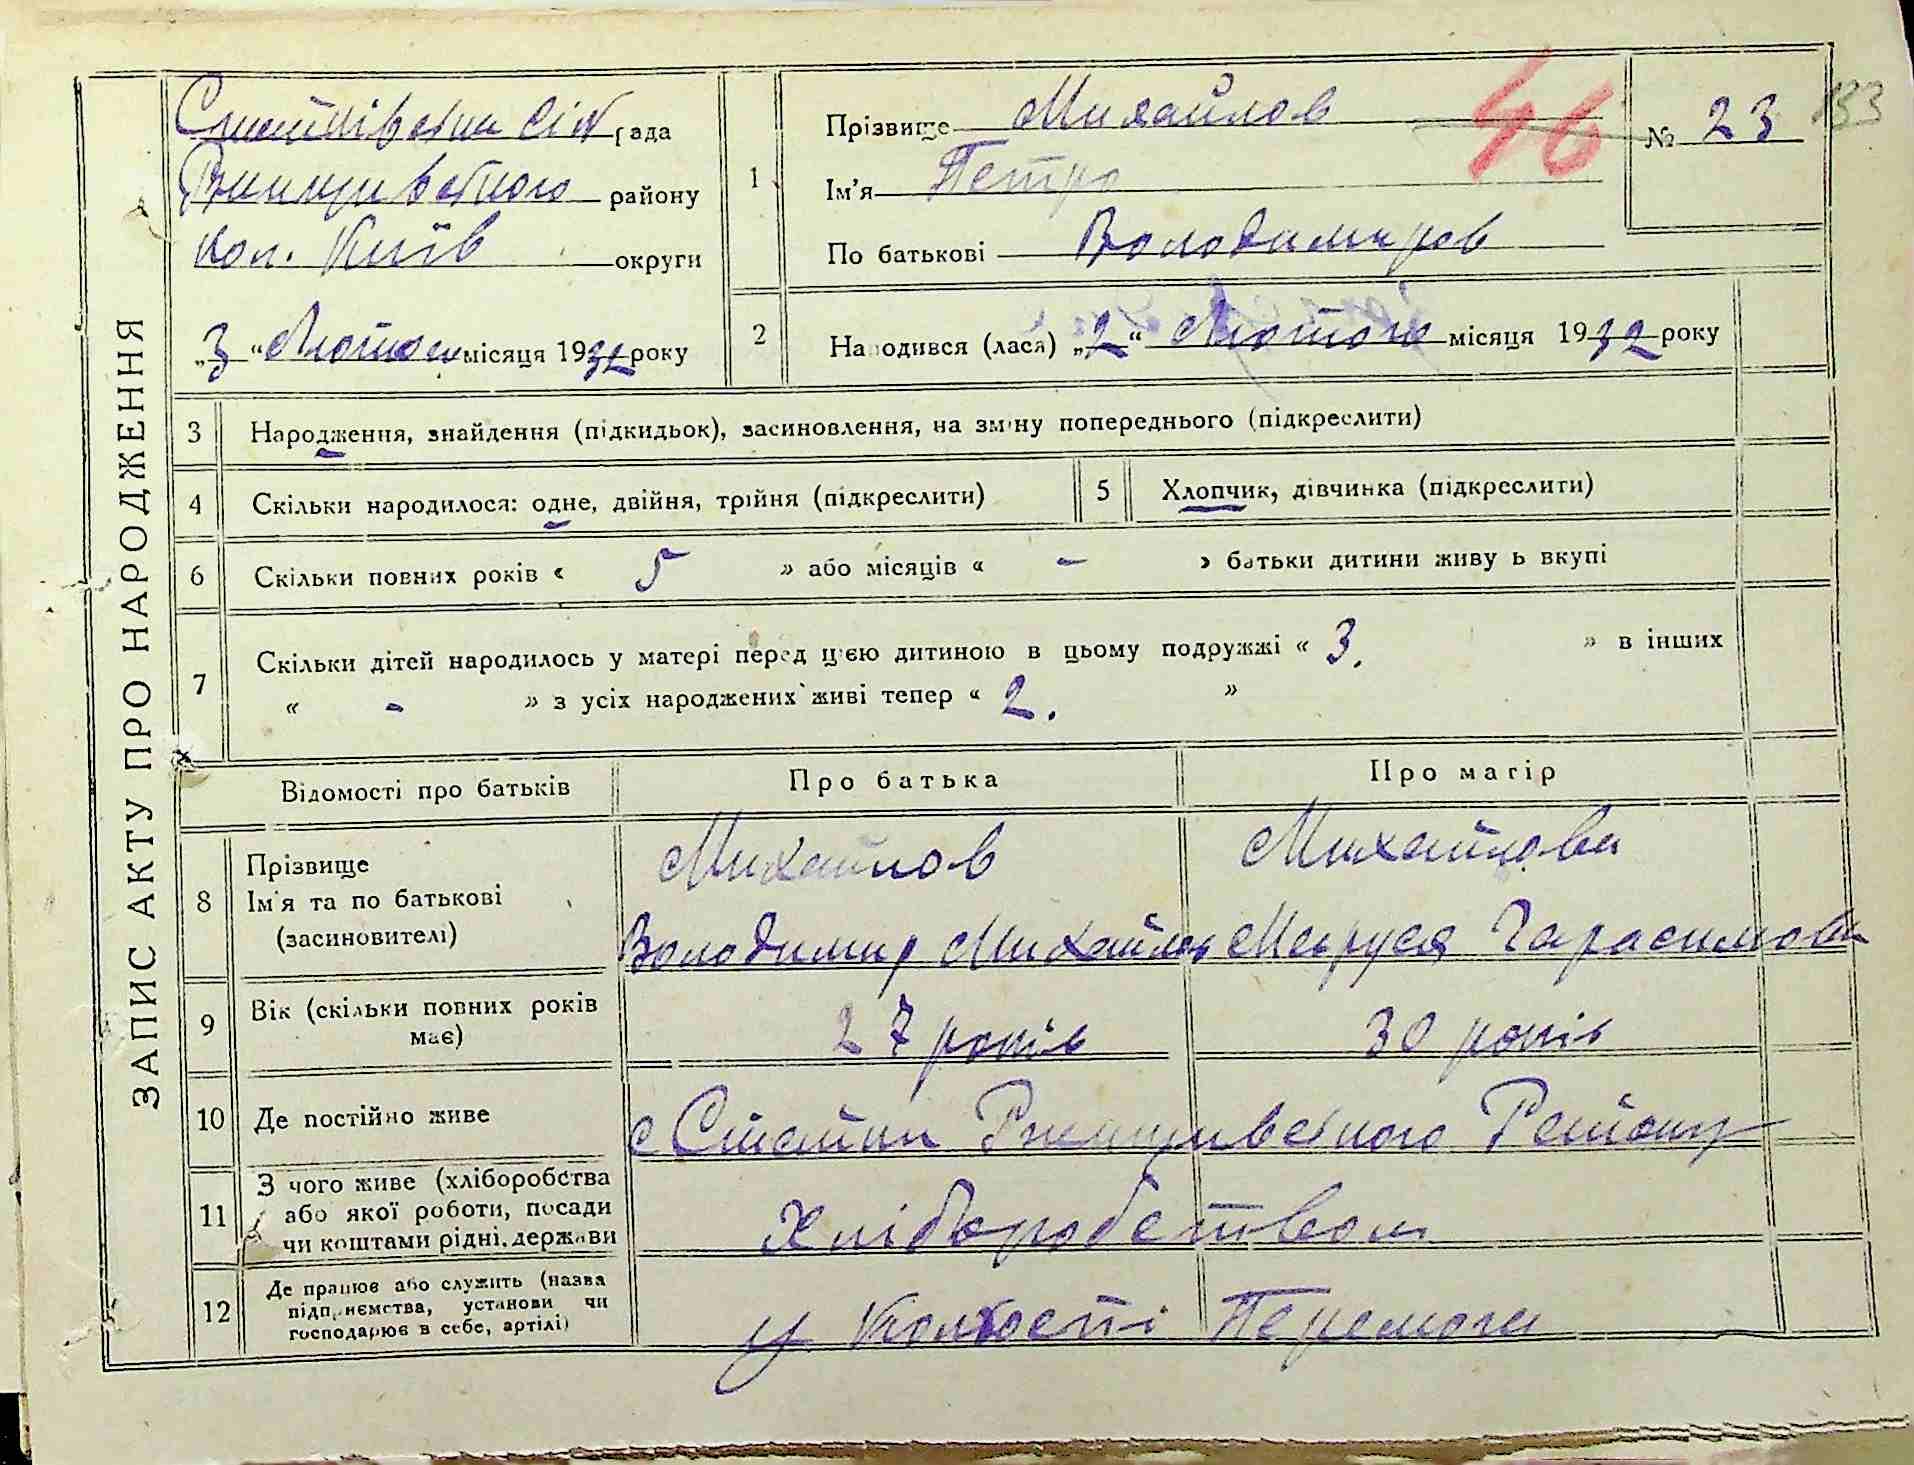 ЗАПИС АКТУ ПРО НАРОДЖЕННЯ
Стайківська сіл рада
Ржищівського району
кол. Київ округи
„3“ Лютого місяця 1932 року
1
Прізвище Михайлов
Ім'я Петро
По батькові Володимиров
46
№ 23
133
2
Народився (лася) „2“ Лютого місяця 1932 року
3 Народження, знайдення (підкидьок), засиновлення, на зміну попереднього (підкреслити)
4 Скільки народилося: одне, двійня, трійня (підкреслити)
5 Хлопчик, дівчинка (підкреслити)
6 Скільки повних років « 5 » або місяців « - » батьки дитини живуть вкупі
7 Скільки дітей народилось у матері перед цією дитиною в цьому подружжі « 3. » в інших
« - » з усіх народжених живі тепер « 2. »
Відомості про батьків Про батька Про матір
8 Прізвище
Ім'я та по батькові
(засиновителі)
Михайлов
Володимир Михайлов
Михайлова
Маруся Гарасимова
9 Вік (скільки повних років
має)
27 років 30 років
10 Де постійно живе с Стайки Ржищивського Району
11 З чого живе (хліборобства
або якої роботи, посади
чи коштами рідні, держави
Хліборобством
12 Де працює або служить (назва
підприємства, установи чи
господарює в себе, артілі)
у колхоспі Перемога